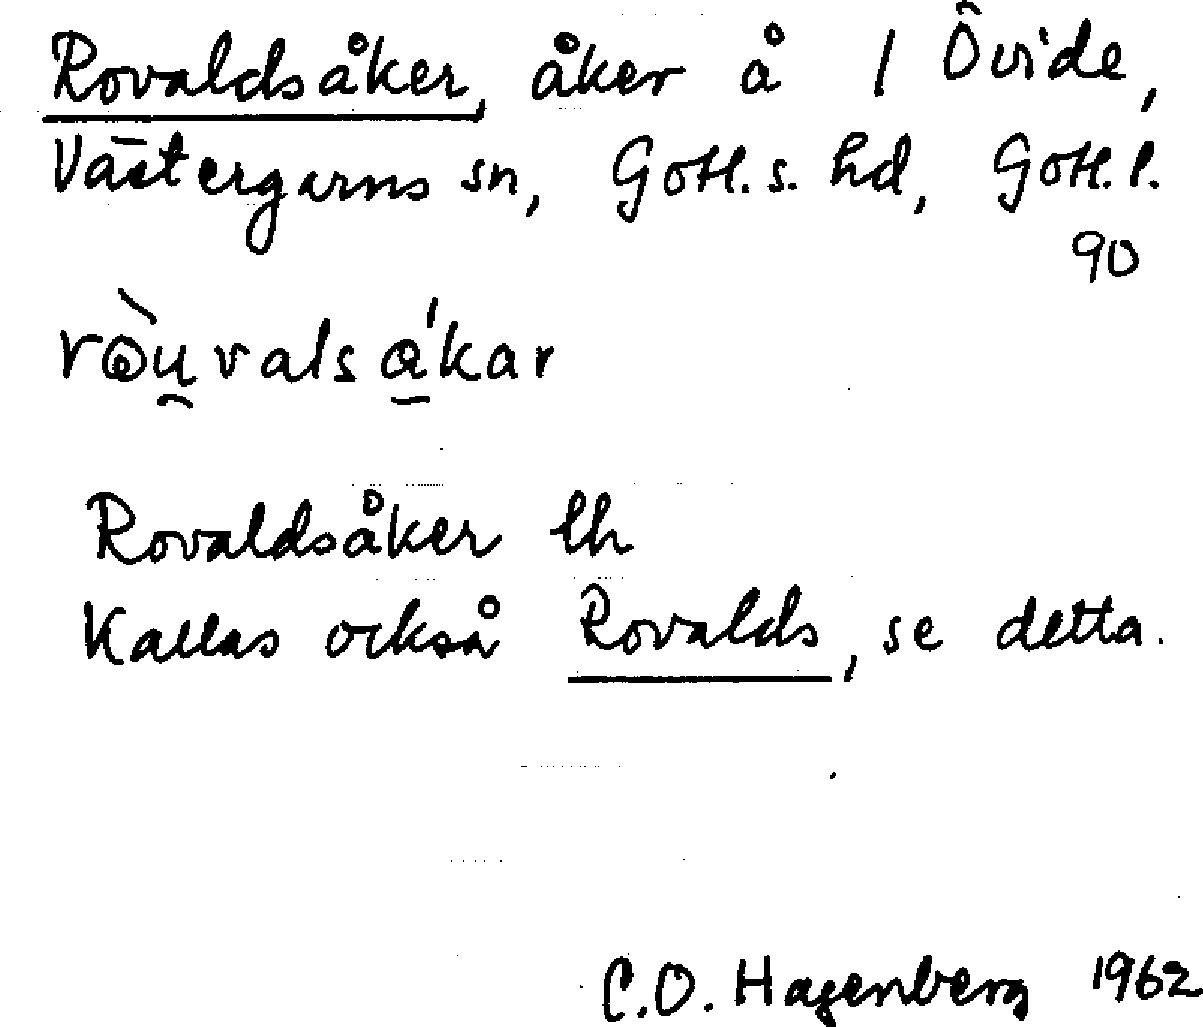 Rovaldsåker, åker å 1 Övide,
Västergarns sn, Gotl. s. hd, Gotl. l.
90
ròu̯valsá̱kar
Rovaldsåker lh
Kallas också Rovalds, se detta.
C.O. Hagenberg 1962